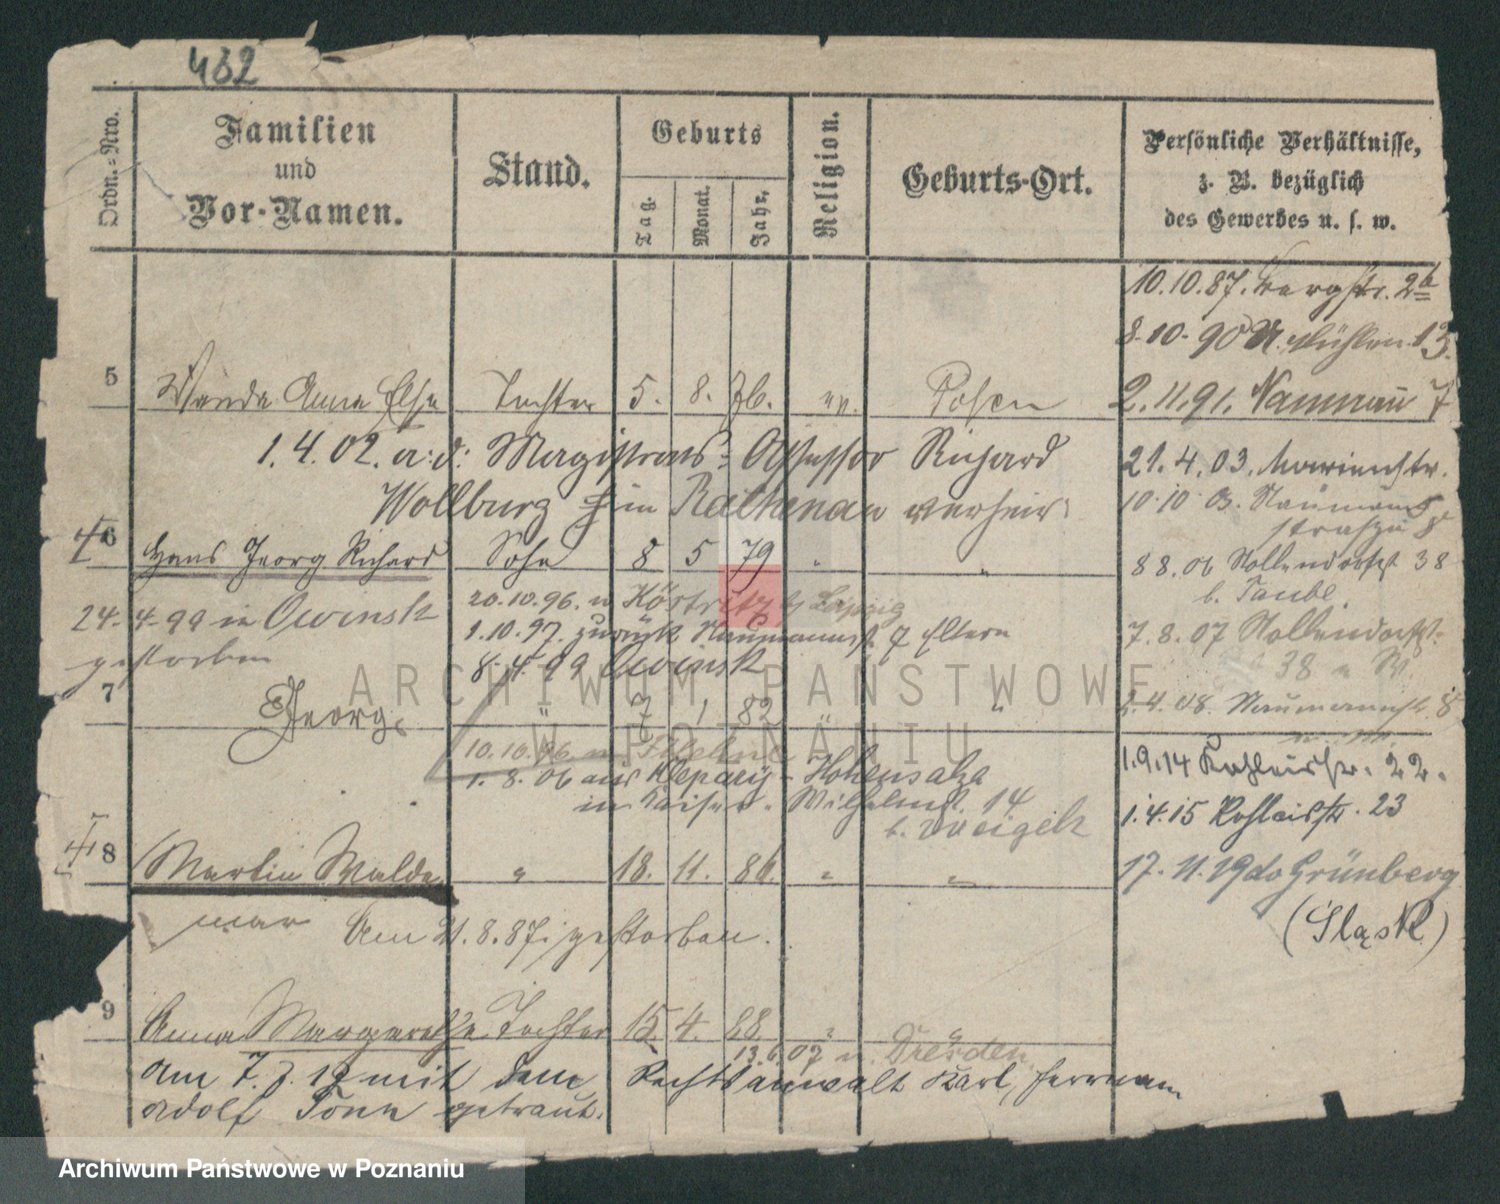 462
Ordn.=Nro.
Familien
und
Vor-Namen.
Stand.
Geburts
Tag.
Monat.
Jahr.
Religion.
Geburts-Ort.
Persönliche Verhältnisse,
z. B. bezüglich
des Gewerbes u. s. w.
10.10.87. Bergstr. 2b
8.10.90 St. Mühlen 13.
5 Wanda Anna Else Tochter 5. 8. 76. ev. Posen
2.11.91. Naumann 7
1.4.02. a. d. Magistrats-Assessor Richard
Wollburg in Rathenau verheir.
21.4.03. Marienstr.
10.10.03. Naumann
straße 8
6 Hans Georg Richard Sohn 8 5 79 " "
24.4.99 in Owinsk
gestorben
20.10.96. n. Köstritz b. Leipzig
1.10.97. zurück Naumannst. 7 Eltern
8.4.99 Owinsk
8 8.06 Nollendorfst 38
b. Taube.
7.8.07 Nollendorfst.
38
2.4.08. Naumannst. 8
7 Georg. " 7 1 82 " "
10.10.06. n. Filehne
1.8.06 aus - Hohensalza
in Kaiser-Wilhelmst. 14
b.
1.9.14 Kohleisstr. 22.
1.4.15 Kohleisstr. 23
17.11.19 do Grünberg
(Śląsk)
8 Martin Walde " 18. 11. 86. " "
mar Am 21.8.87. gestorben.
9 Anna Margarethe Tochter 15. 4. 88. " "
13.6.07 n. Dresden
Am 7.7.12 mit dem Rechtsanwalt Karl, Herrman
Adolf Tonn getraut.
ARCHIWUM PAŃSTWOWE
W POZNANIU
Archiwum Państwowe w Poznaniu